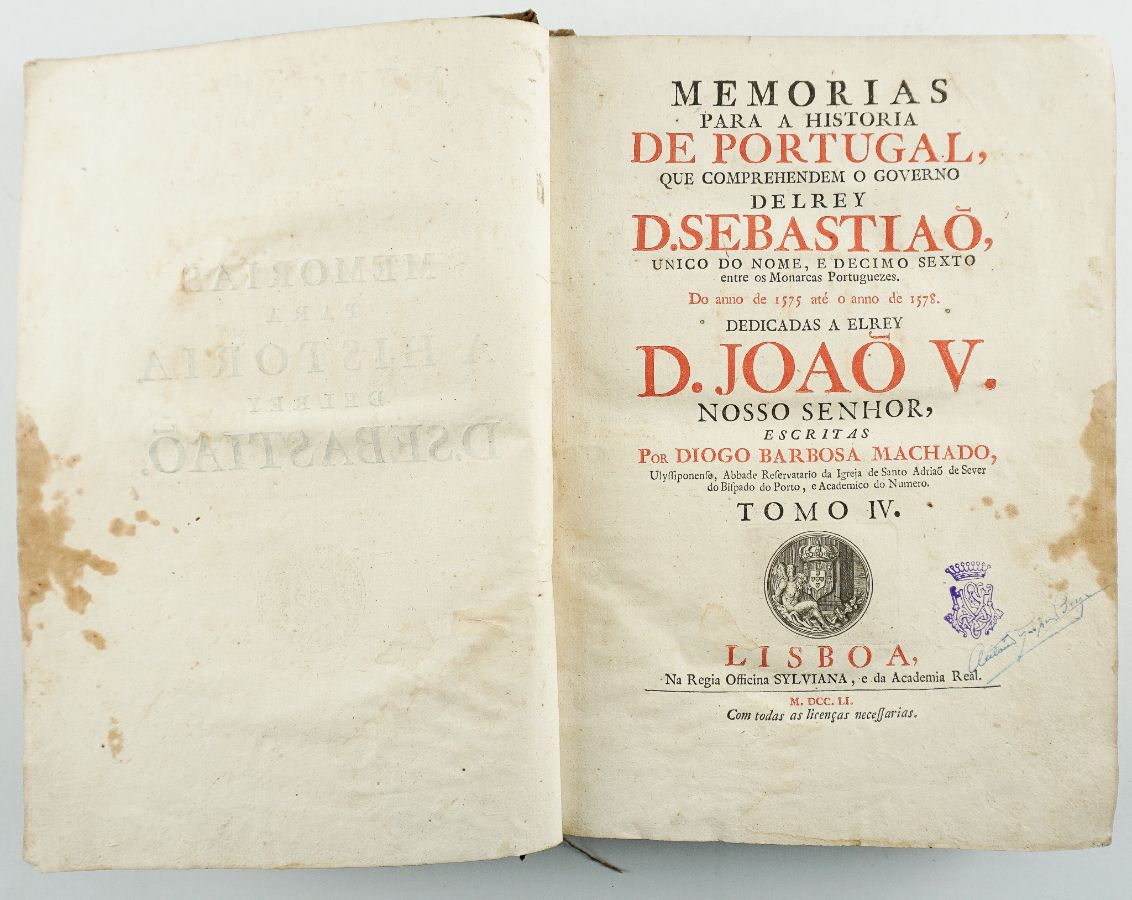 MEMORIAS
PARA
A HISTORIA
DELREY
D. SEBASTIAÕ.
MEMORIAS
PARA A HISTORIA
DE PORTUGAL,
QUE COMPREHENDEM O GOVERNO
DELREY
D. SEBASTIAÕ,
UNICO DO NOME, E DECIMO SEXTO
entre os Monarcas Portuguezes.
Do anno de 1575 até o anno de 1578.
DEDICADAS A ELREY
D. JOAÕ V.
NOSSO SENHOR,
ESCRITAS
POR DIOGO BARBOSA MACHADO,
Ulyssiponense, Abbade Reservatario da Igreja de Santo Adriaõ de Sever
do Bispado do Porto, e Academico do Numero.
TOMO IV.
LISBOA,
Na Regia Officina SYLVIANA, e da Academia Real.
M. DCC. LI.
Com todas as licenças necessarias.